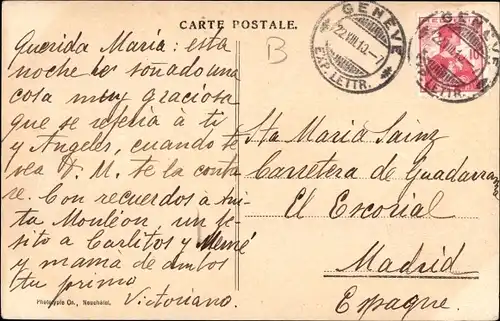 CARTE POSTALE.
GENÈVE
22.VIII.1
EXP. LETTR.
Querida María: esta
noche he soñado una
cosa muy graciosa
que se refería á ti
y Angeles, cuando te
vea D. M. te la conta
ré. Con recuerdos á
ta Monléon, un be-
sito a Carlitos y Memé
y mamá de ambos
tu primo
Victoriano.
B
10
EXP. LETTR.
Sta María Sainz
Carretera de Guadarrama
El Escorial
Madrid
Espagne.
Phototypie Co., Neuchâtel.